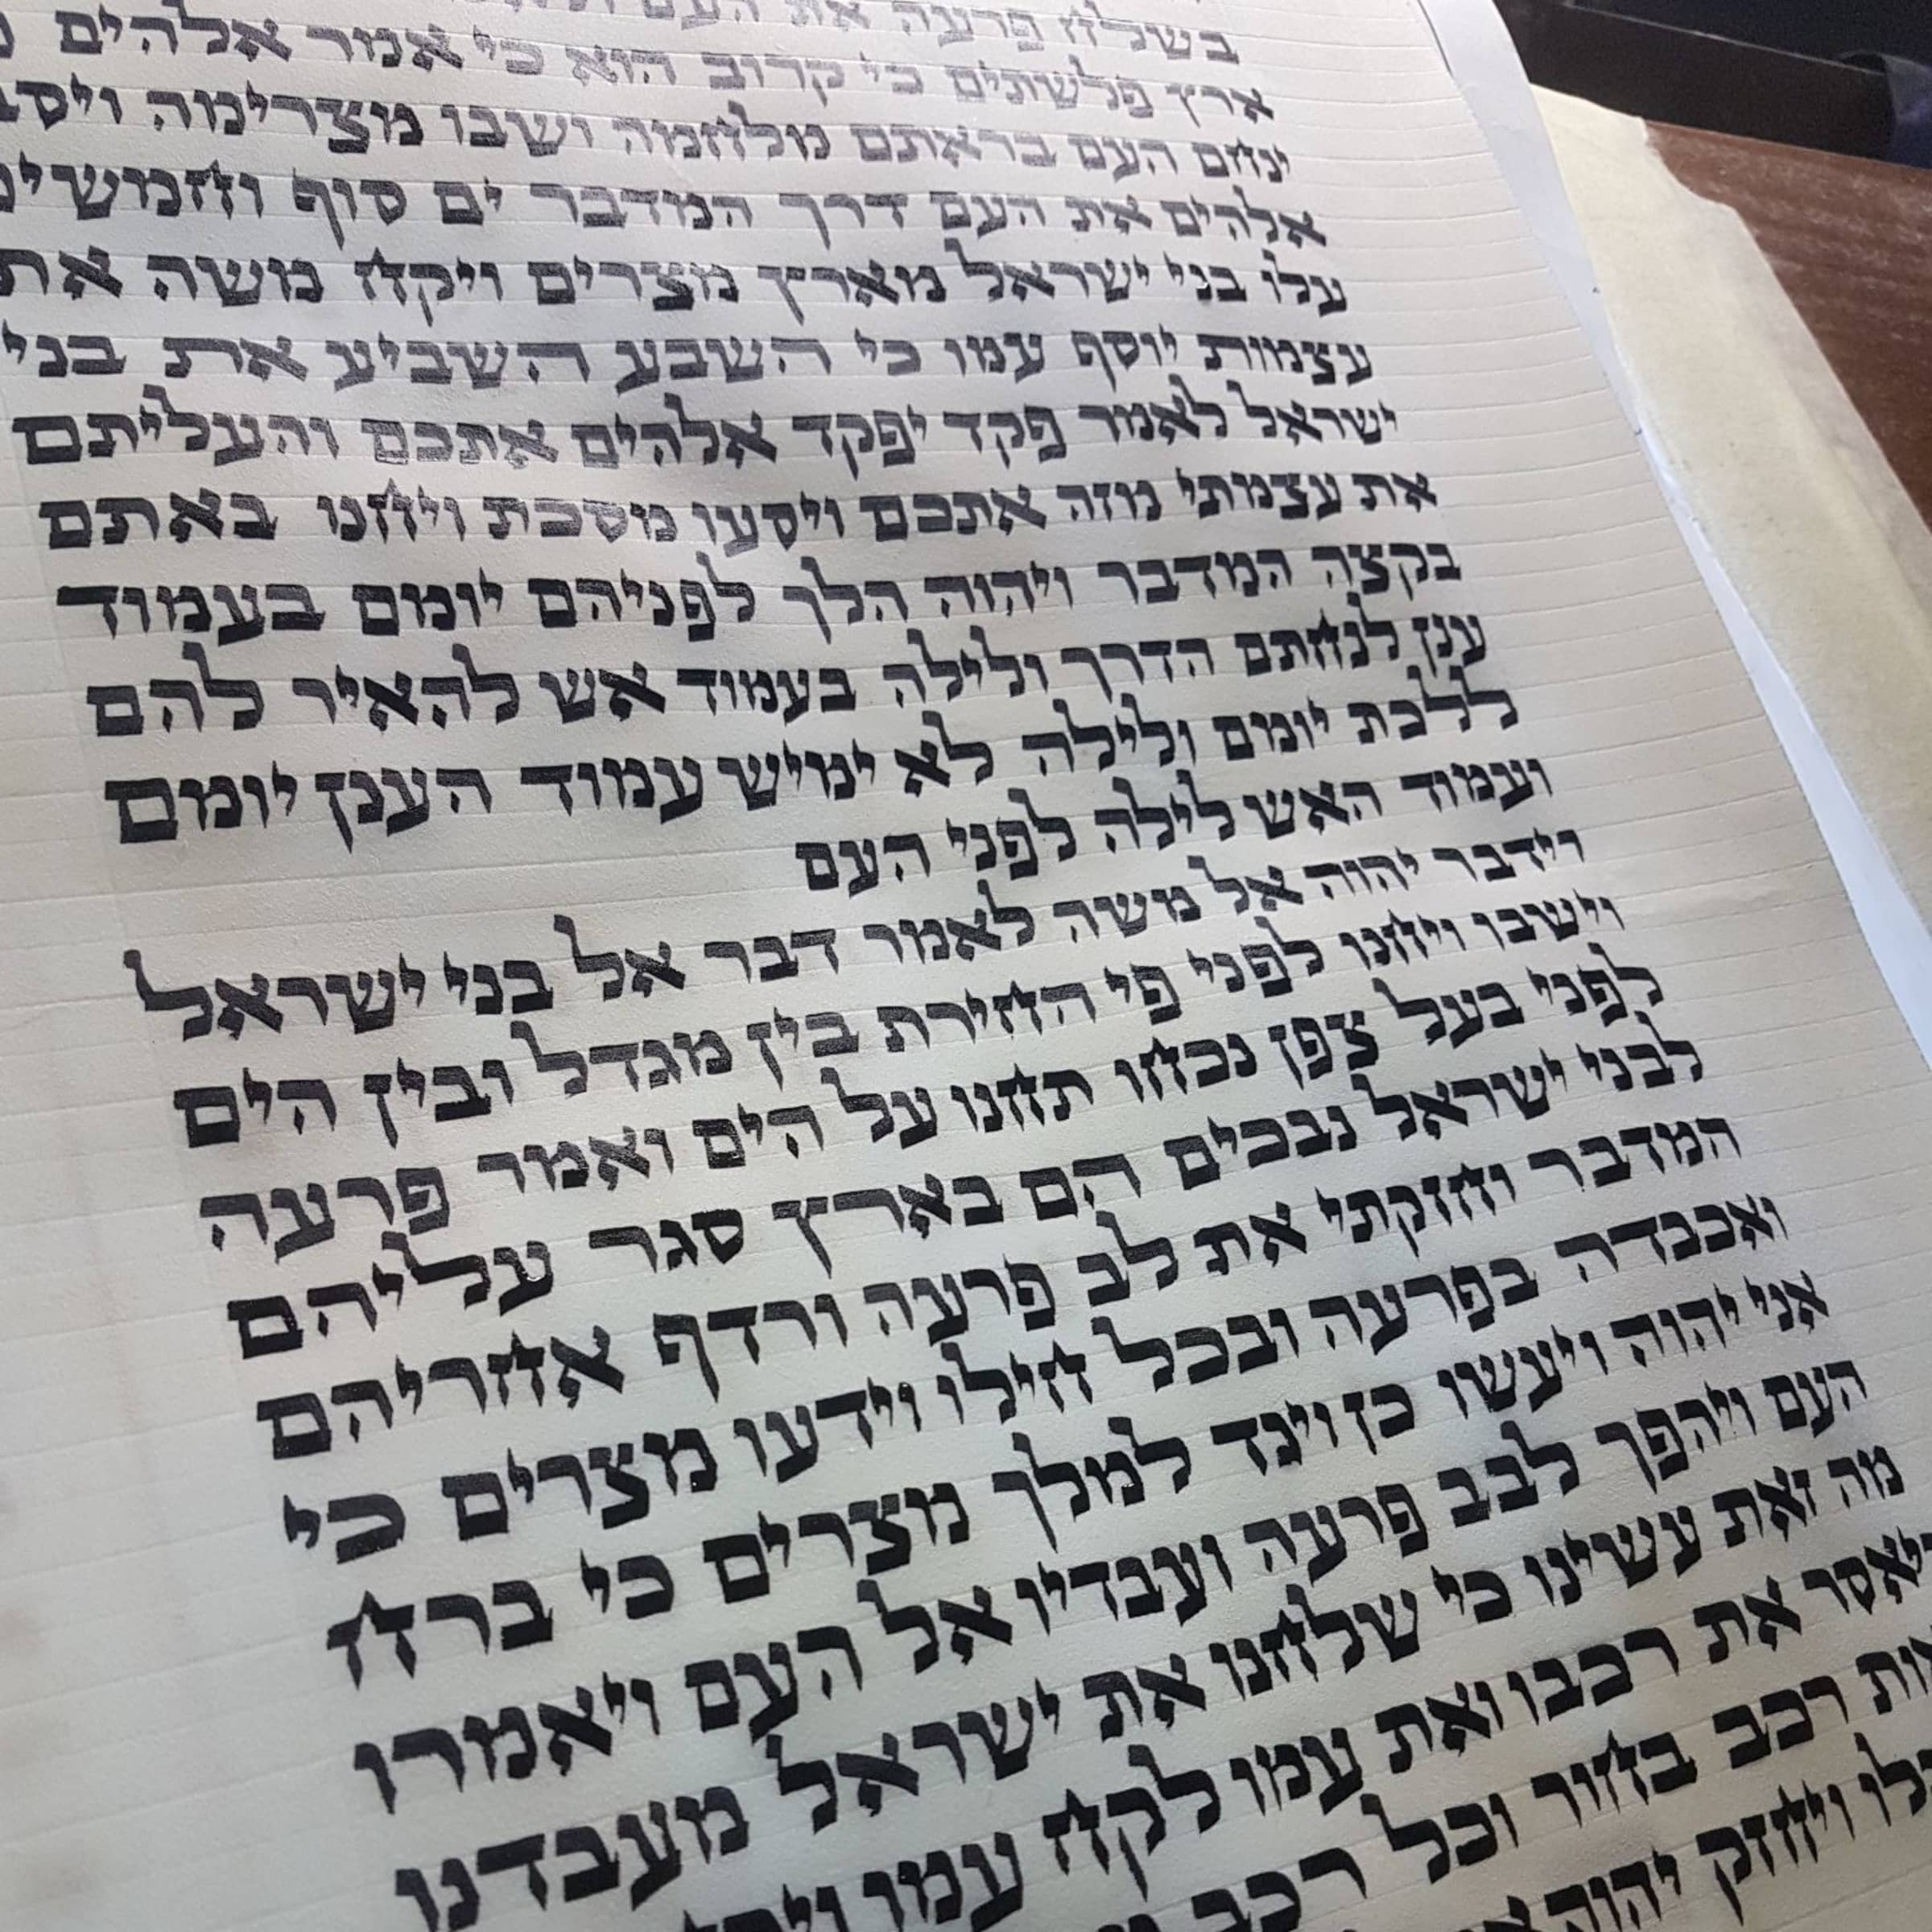 בשלח פרעה את העם
ארץ פלשתים כי קרוב הוא כי אמר אלהים
ינחם העם בראתם מלחמה ושבו מצרימה ויסב
אלהים את העם דרך המדבר ים סוף וחמשים
עלו בני ישראל מארץ מצרים ויקח משה את
עצמות יוסף עמו כי השבע השביע את בני
ישראל לאמר פקד יפקד אלהים אתכם והעליתם
את עצמתי מזה אתכם ויסעו מסכת ויחנו באתם
בקצה המדבר ויהוה הלך לפניהם יומם בעמוד
ענן לנחתם הדרך ולילה בעמוד אש להאיר להם
ללכת יומם ולילה לא ימיש עמוד הענן יומם
ועמוד האש לילה לפני העם
וידבר יהוה אל משה לאמר דבר אל בני ישראל
וישבו ויחנו לפני פי החירת בין מגדל ובין הים
לפני בעל צפן נכחו תחנו על הים ואמר פרעה
לבני ישראל נבכים הם בארץ סגר עליהם
המדבר וחזקתי את לב פרעה ורדף אחריהם
ואכבדה בפרעה ובכל חילו וידעו מצרים כי
אני יהוה ויעשו כן וינד למלך מצרים כי ברח
העם ויהפך לבב פרעה ועבדיו אל העם ויאמרו
מה זאת עשינו כי שלחנו את ישראל מעבדנו
ויאסר את רכבו ואת עמו לקח עמו
רכב בחור וכל רכב
ויחזק יהוה